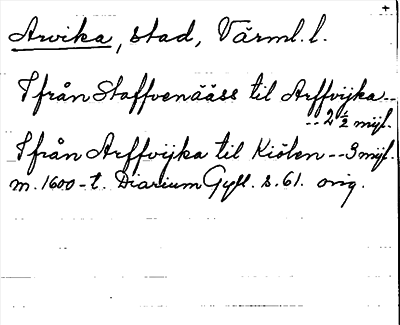 +
Arvika, stad, Värml. l.
Ifrån Staffvenääss til Arffvijka --
-- 2 1/2 mijl.
Ifrån Arffvijka til Kiölen -- 3 mijl.
m. 1600-t. Diarium Gyll. s. 61. orig.